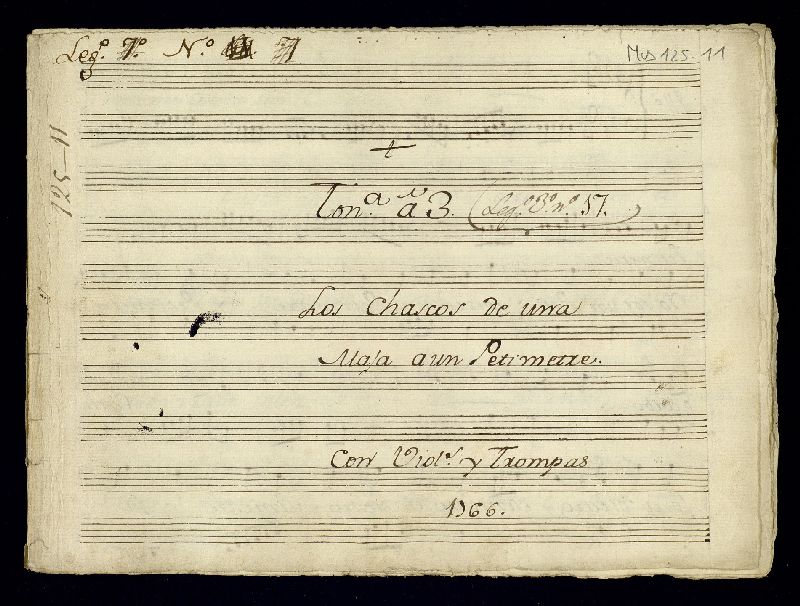 Leg.º 7.º N.º 7
Mus 125-11
125-11
Ton.ª a 3. (Leg.º 3.º n.º 57.
Los Chascos de una
Maja a un Petimetre.
Con Viol.s y Trompas
1766.